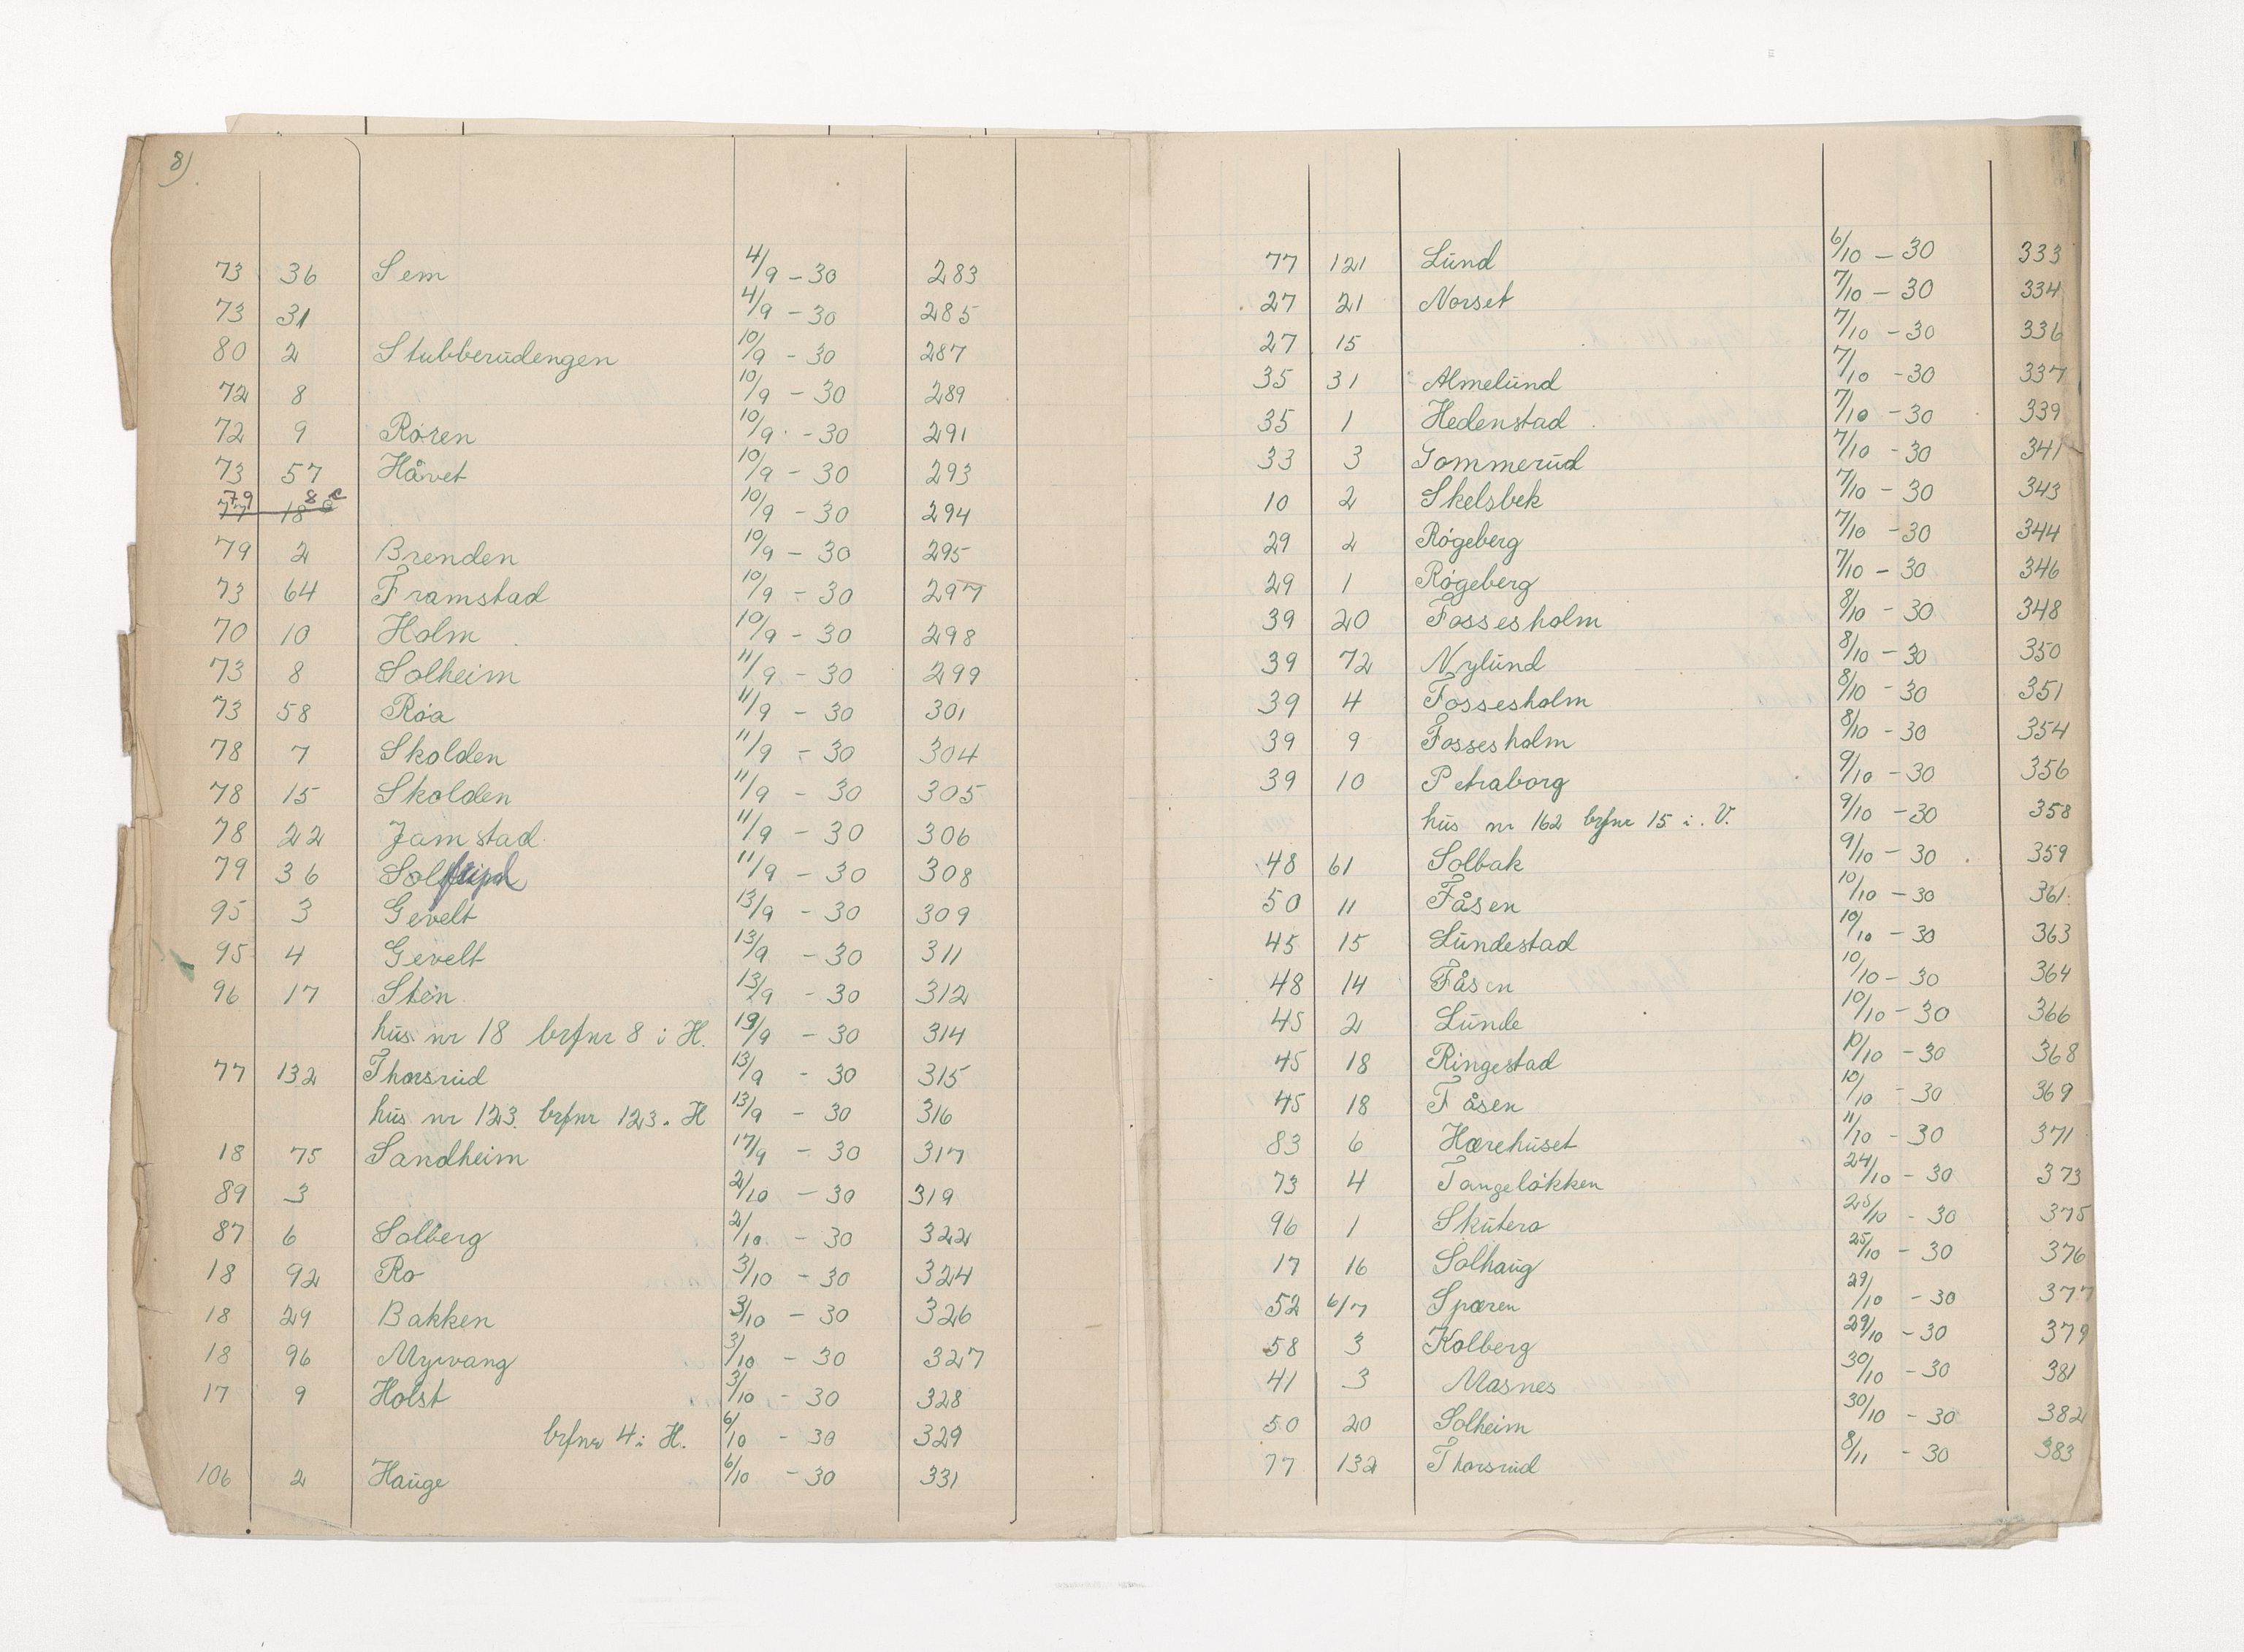 8)
73 36 Sem 4/9 - 30 283
73 31 4/9 - 30 285
80 2 Stubberudengen 10/9 - 30 287
72 8 10/9 - 30 289
72 9 Rosen 10/9 - 30 291
73 57 Håvet 10/9 - 30 293
79 8 c
77 18 10/9 - 30 294
79 2 Brenden 10/9 - 30 295
73 64 Framstad 10/9 - 30 297
70 10 Holm 10/9 - 30 298
73 8 Solheim 11/9 - 30 299
73 58 Róa 11/9 - 30 301
78 7 Skolden 11/9 - 30 304
78 15 Skolden 11/9 - 30 305
78 22 Jamstad 11/9 - 30 306
79 36 11/9 - 30 308
95 3 Gevelt 13/9 - 30 309
95 4 Gevelt 13/9 - 30 311
96 17 Sten 13/9 - 30 312
hus nr 18 brfnr 8 i H. 19/9 - 30 314
77 132 Thorsrud 13/9 - 30 315
hus nr 123. brfnr 123. H 13/9 - 30 316
18 75 Sandheim 17/9 - 30 317
89 3 2/10 - 30 319
87 6 Solberg 2/10 - 30 322
18 92 Ro 3/10 - 30 324
18 29 Bakken 3/10 - 30 326
18 96 Myrvang 3/10 - 30 327
17 9 Holst 3/10 - 30 328
brfnr 4 i H. 6/10 - 30 329
106 2 Hauge 6/10 - 30 331
77 121 Lund 6/10 - 30 333
27 21 Norset 7/10 - 30 334
27 15 7/10 - 30 336
35 31 Almelund 7/10 - 30 337
35 1 Hedenstad 7/10 - 30 339
33 3 Gommerud 7/10 - 30 341
10 2 Skelsbek 7/10 - 30 343
29 2 Rógeberg 7/10 - 30 344
29 1 Rógeberg 7/10 - 30 346
39 20 Fossesholm 8/10 - 30 348
39 72 Nylund 8/10 - 30 350
39 4 Fossesholm 8/10 - 30 351
39 9 Fossesholm 8/10 - 30 354
39 10 Petraborg 9/10 - 30 356
hus nr 162 brfnr 15 i. V. 9/10 - 30 358
48 61 Solbak 9/10 - 30 359
50 11 Fåsen 10/10 - 30 361
45 15 Lundestad 10/10 - 30 363
48 14 Fåsen 10/10 - 30 364
45 2 Lunde 10/10 - 30 366
45 18 Ringestad 10/10 - 30 368
45 18 Fåsen 10/10 - 30 369
83 6 Hærehuset 11/10 - 30 371
73 4 Tangelókken 24/10 - 30 373
96 1 Skutera 25/10 - 30 375
17 16 Solhaug 25/10 - 30 376
52 6/7 Spæren 29/10 - 30 377
58 3 Kolberg 29/10 - 30 379
41 3 Masnes 30/10 - 30 381
50 20 Solheim 30/10 - 30 382
77 132 Thorsrud 8/11 - 30 383